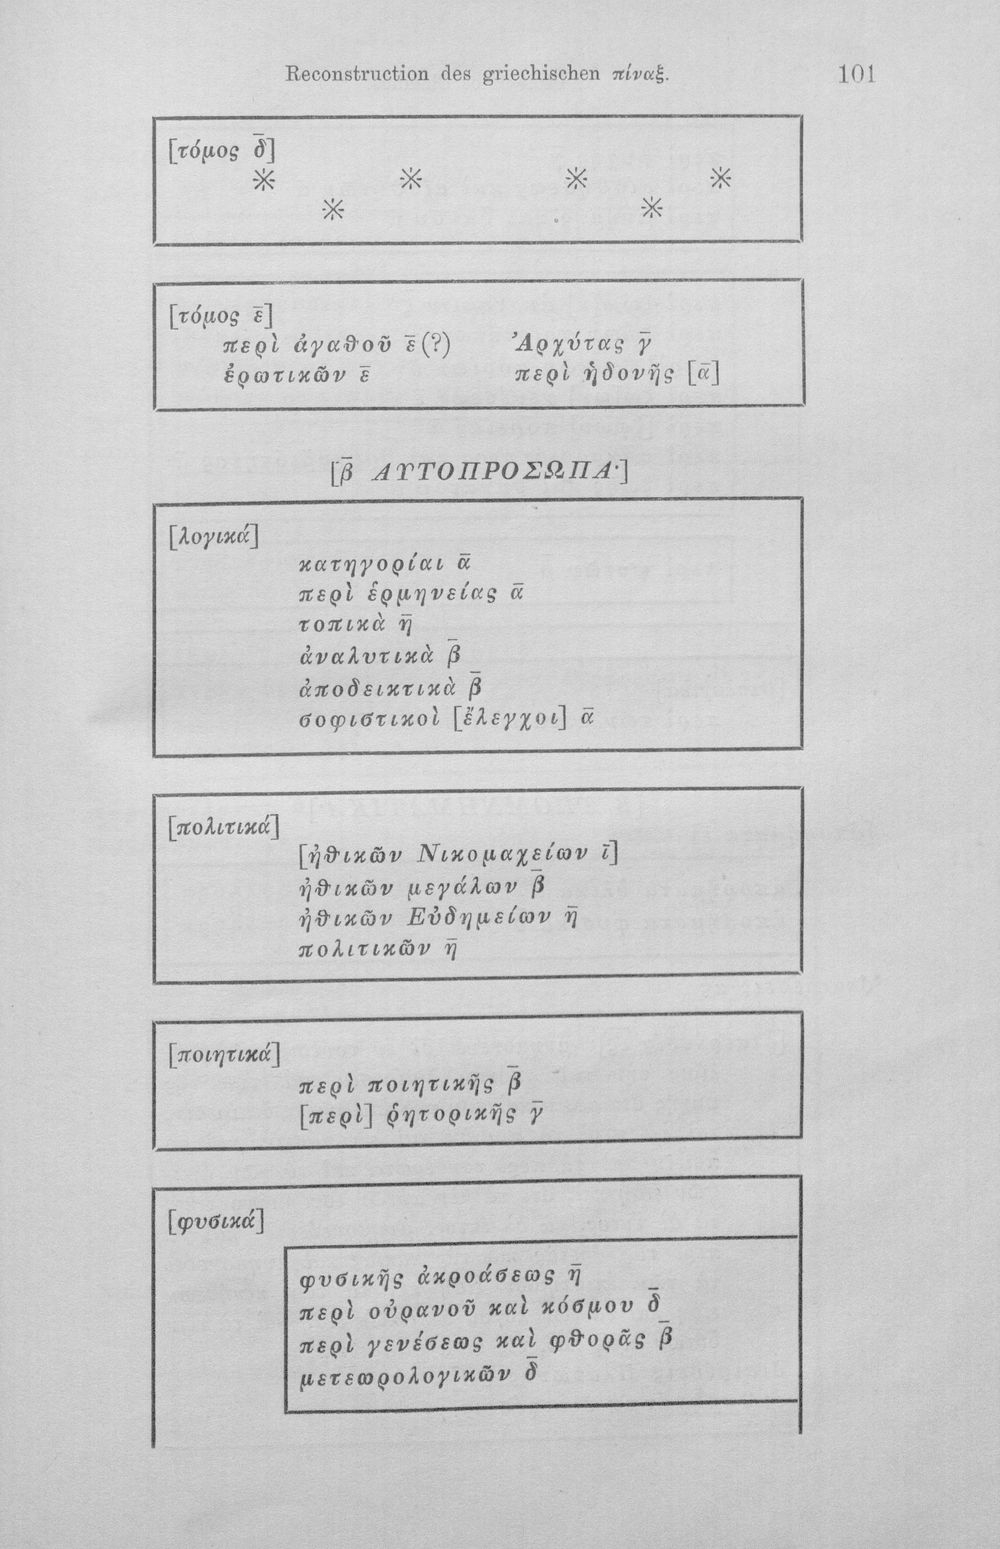 Reconstruction des griechischen πίναξ. 101
[τόμος δ̄]
※ ※ ※ ※
※ ※
[τόμος ε̄]
περὶ ἀγαθοῦ ε̄(?) Ἀρχύτας γ̄
ἐρωτικῶν ε̄ περὶ ἡδονῆς [ᾱ]
[β̄ ΑΥΤΟΠΡΟΣΩΠΑ·]
[λογικά]
κατηγορίαι ᾱ
περὶ ἑρμηνείας ᾱ
τοπικὰ η̄
ἀναλυτικὰ β̄
ἀποδεικτικὰ β̄
σοφιστικοὶ [ἔλεγχοι] ᾱ
[πολιτικά]
[ἠθικῶν Νικομαχείων ῑ]
ἠθικῶν μεγάλων β̄
ἠθικῶν Εὐδημείων η̄
πολιτικῶν η̄
[ποιητικά]
περὶ ποιητικῆς β̄
[περὶ] ῥητορικῆς γ̄
[φυσικά]
φυσικῆς ἀκροάσεως η̄
περὶ οὐρανοῦ καὶ κόσμου δ̄
περὶ γενέσεως καὶ φθορᾶς β̄
μετεωρολογικῶν δ̄